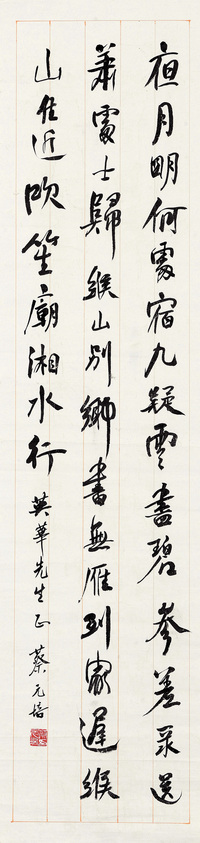 夜月明何處宿九疑雲盡碧參差录送
蕭處士歸緱山別鄉書無雁到家遲緱
山住近吹笙廟湘水行
英華先生正 蔡元培